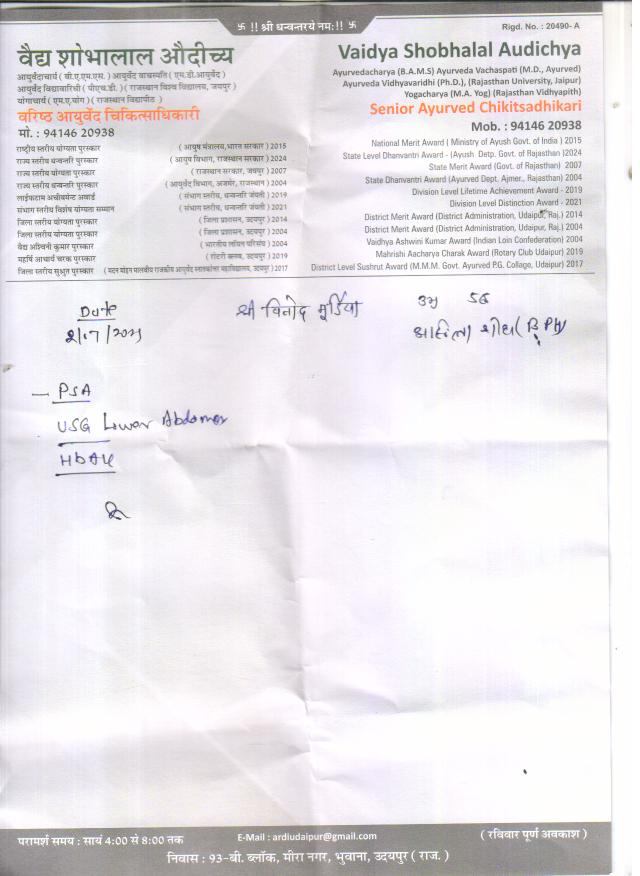 卐 !! श्री धन्वन्तरये नमः!! 卐
Rigd. No. : 20490- A
वैद्य शोभालाल औदीच्य
आयुर्वेदाचार्य ( बी.ए.एम.एस.) आयुर्वेद वाचस्पति ( एम.डी.आयुर्वेद )
आयुर्वेद विद्यावारिधी ( पीएच.डी. ) ( राजस्थान विश्व विद्यालय, जयपुर )
योगाचार्य ( एम.ए.योग ) ( राजस्थान विद्यापीठ )
वरिष्ठ आयुर्वेद चिकित्साधिकारी
मो. : 94146 20938
राष्ट्रीय स्तरीय योग्यता पुरस्कार ( आयुष मंत्रालय,भारत सरकार ) 2015
राज्य स्तरीय धन्वन्तरि पुरस्कार ( आयुष विभाग, राजस्थान सरकार ) 2024
राज्य स्तरीय योग्यता पुरस्कार ( राजस्थान सरकार, जयपुर ) 2007
राज्य स्तरीय धन्वन्तरि पुरस्कार ( आयुर्वेद विभाग, अजमेर, राजस्थान ) 2004
लाईफटाम अचीवमेन्ट अवार्ड ( संभाग स्तरीय, धन्वन्तरि जंयती ) 2019
संभाग स्तरीय विशेष योग्यता सम्मान ( संभाग स्तरीय, धन्वन्तरि जंयती ) 2021
जिला स्तरीय योग्यता पुरस्कार ( जिला प्रशासन, उदयपुर ) 2014
जिला स्तरीय योग्यता पुरस्कार ( जिला प्रशासन, उदयपुर ) 2004
वैद्य अश्विनी कुमार पुरस्कार ( भारतीय लॉयन परिसंघ ) 2004
महर्षि आचार्य चरक पुरस्कार ( रोटरी क्लब, उदयपुर ) 2019
जिला स्तरीय सुश्रुत पुरस्कार ( मदन मोहन मालवीय राजकीय आयुर्वेद स्नातकोत्तर महाविद्यालय, उदयपुर ) 2017
Vaidya Shobhalal Audichya
Ayurvedacharya (B.A.M.S) Ayurveda Vachaspati (M.D., Ayurved)
Ayurveda Vidhyavaridhi (Ph.D.), (Rajasthan University, Jaipur)
Yogacharya (M.A. Yog) (Rajasthan Vidhyapith)
Senior Ayurved Chikitsadhikari
Mob. : 94146 20938
National Merit Award ( Ministry of Ayush Govt. of India ) 2015
State Level Dhanvantri Award - (Ayush Detp. Govt. of Rajasthan )2024
State Merit Award (Govt. of Rajasthan) 2007
State Dhanvantri Award (Ayurved Dept. Ajmer., Rajasthan) 2004
Division Level Lifetime Achievement Award - 2019
Division Level Distinction Award - 2021
District Merit Award (District Administration, Udaipur, Raj.) 2014
District Merit Award (District Administration, Udaipur, Raj.) 2004
Vaidhya Ashwini Kumar Award (Indian Loin Confederation) 2004
Mahrishi Aacharya Charak Award (Rotary Club Udaipur) 2019
District Level Sushrut Award (M.M.M. Govt. Ayurved P.G. Collage, Udaipur) 2017
Date श्री विनोद मूर्डिया उम्र 56
2/07/2025 (BPH)
— PSA
USG Lower Abdomen
HbA1c
परामर्श समय : सायं 4:00 से 8:00 तक
E-Mail : ardiudaipur@gmail.com
( रविवार पूर्ण अवकाश )
निवास : 93-बी. ब्लॉक, मीरा नगर, भुवाना, उदयपुर ( राज. )